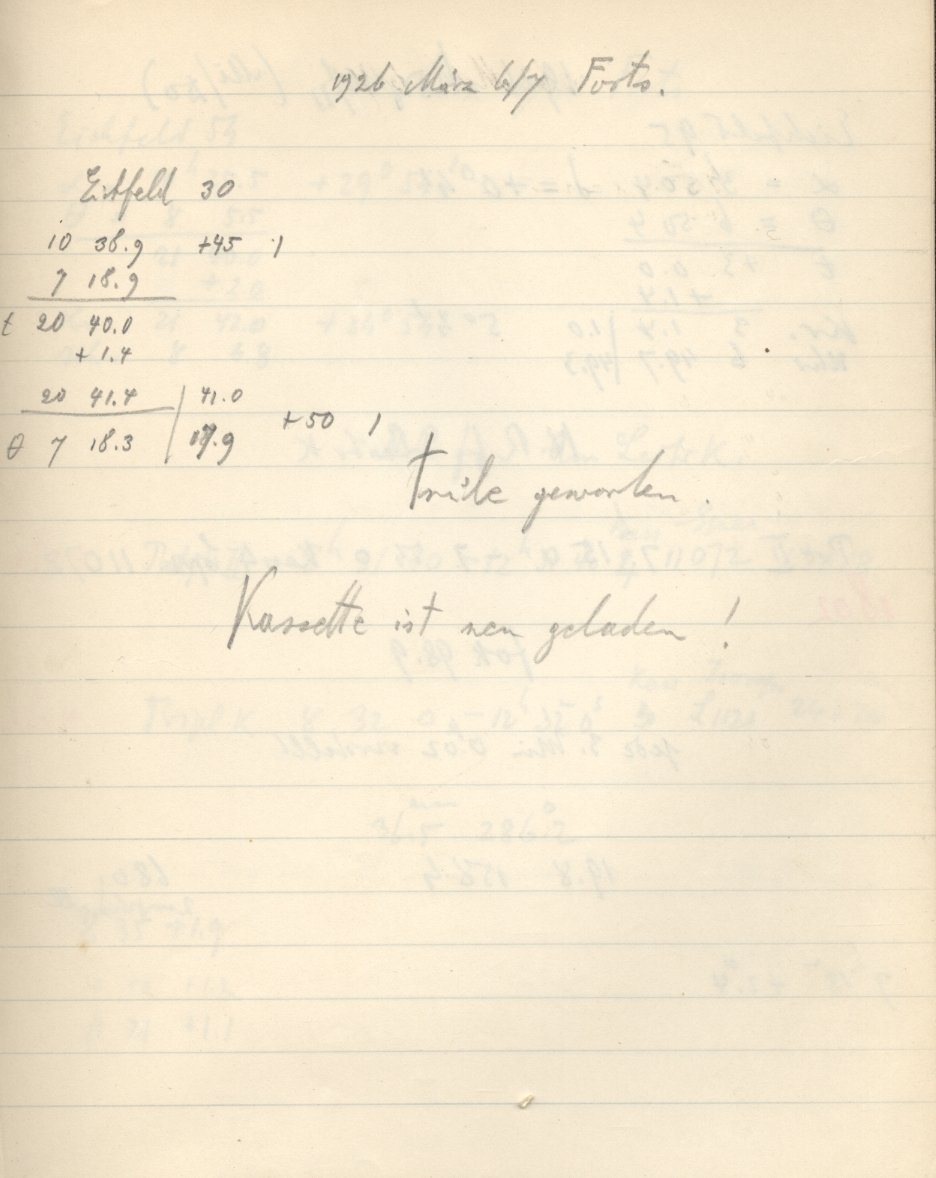 1926 März 6/7 Forts.
Eichfeld 30
10 38.9 +45 1
7 18.9
t 20 40.0
+ 1.4
20 41.4 | 41.0
θ 7 18.3 | 17.9 +50 1
Trübe geworden.
Kassette ist neu geladen!